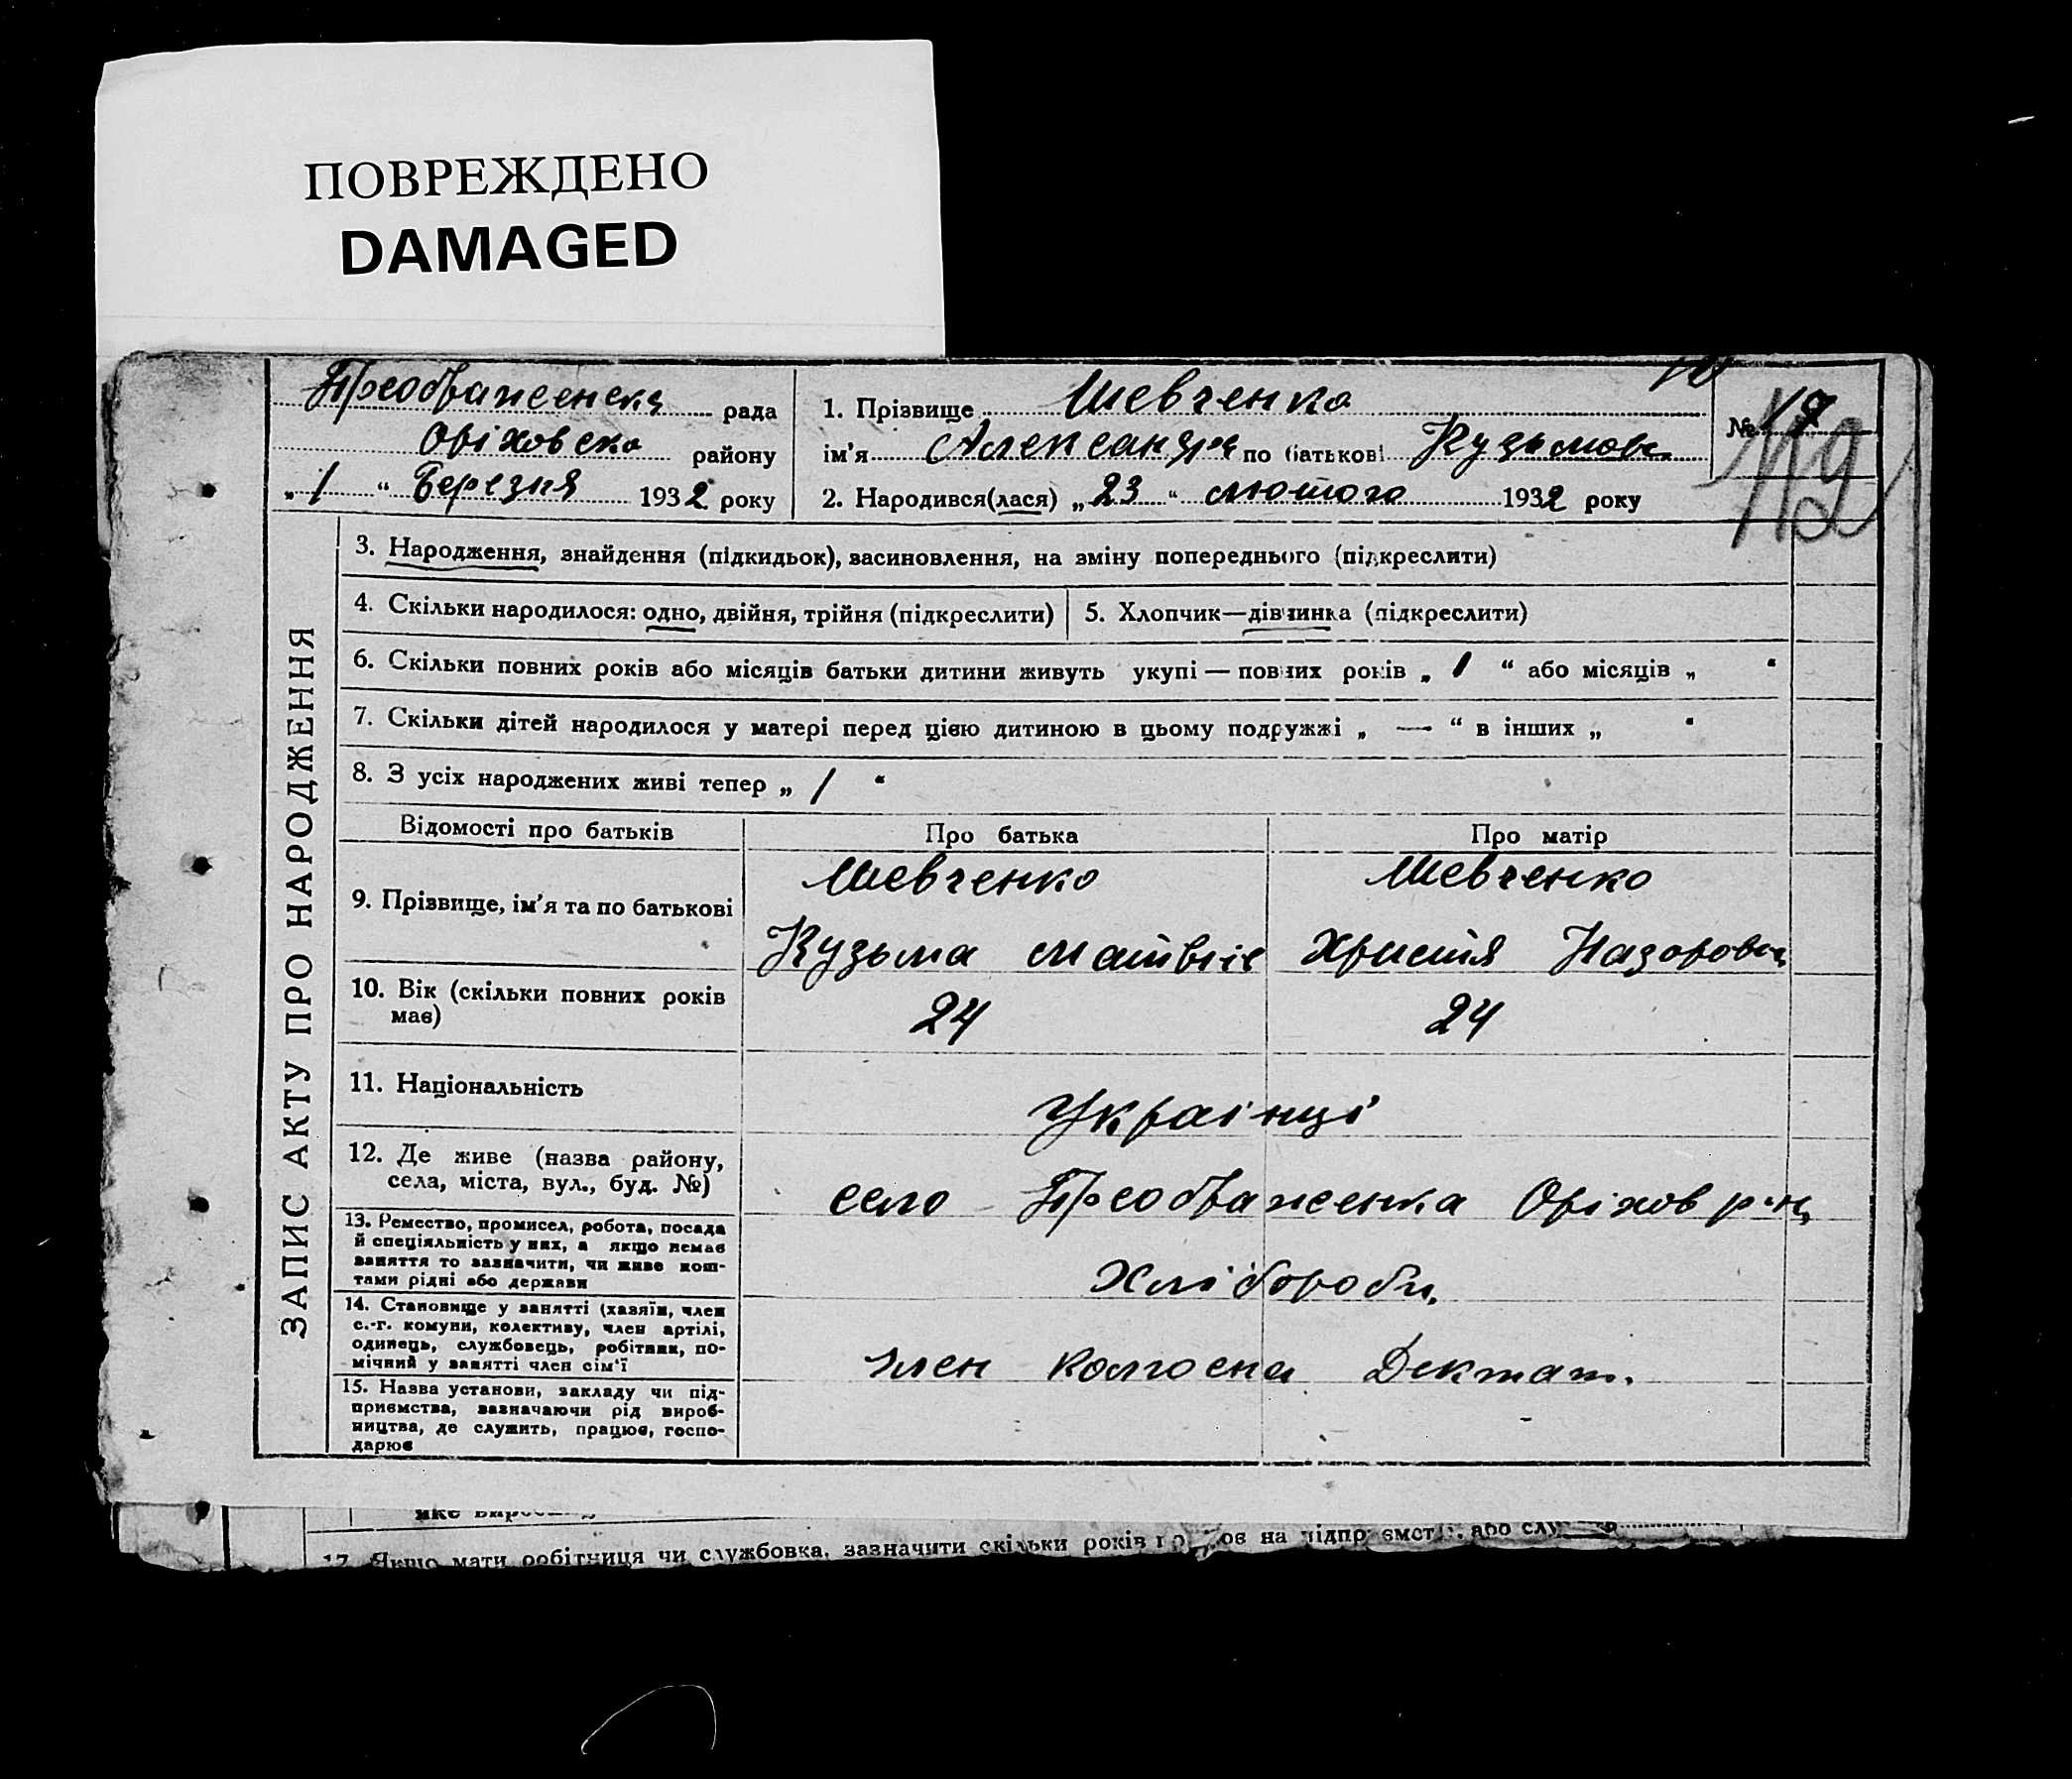 ПОВРЕЖДЕНО
DAMAGED
Преображенська рада
Оріховсько району
„ 1 “ Березня 1932 року
1. Прізвище Шевченко
ім'я Александра по батькові Кузьмовн.
2. Народився(лася) „ 23 “ лютого 1932 року
№ 17
119
ЗАПИС АКТУ ПРО НАРОДЖЕННЯ
3. Народження, знайдення (підкидьок), засиновлення, на зміну попереднього (підкреслити)
4. Скільки народилося: одно, двійня, трійня (підкреслити)
5. Хлопчик—дівчинка (підкреслити)
6. Скільки повних років або місяців батьки дитини живуть укупі — повних років „ 1 “ або місяців „ “
7. Скільки дітей народилося у матері перед цією дитиною в цьому подружжі „ — “ в інших „ “
8. З усіх народжених живі тепер „ 1 “
Відомості про батьків
Про батька
Про матір
9. Прізвище, ім'я та по батькові
Шевченко
Кузьма Матвіїв
Шевченко
Христя Назоровна
10. Вік (скільки повних років
має)
24
24
11. Національність
Українці
12. Де живе (назва району,
села, міста, вул., буд. №)
село Преображенка Оріхов р-н,
13. Ремество, промисел, робота, посада
й спеціяльність у них, а якщо немає
заняття то зазначити, чи живе кош-
тами рідні або держави
Хлібороби,
14. Становище у занятті (хазяїн, член
с.-г. комуни, колективу, член артілі,
одинець, службовець, робітник, по-
мічний у занятті член сім'ї
член колгоспа Диктат.
15. Назва установи, закладу чи під-
приємства, зазначаючи рід вироб-
ництва, де служить, працює, госпо-
дарює
17. Якщо мати робітниця чи службовка, зазначити скільки років на підприємстві, або